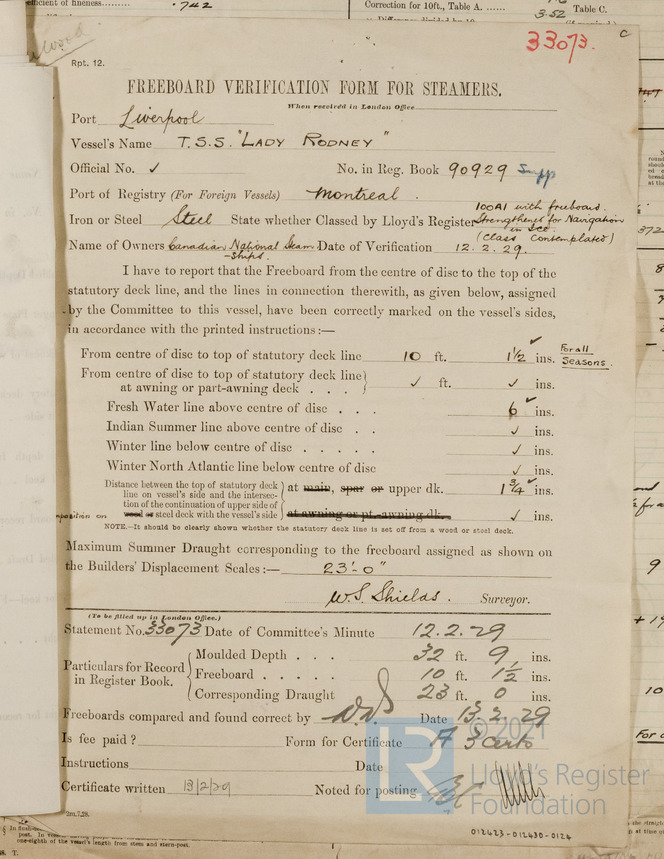 efficient of fineness
.742
Correction for 10ft., Table A.
3.52 Table C.
33073.
C
Rpt. 12.
FREEBOARD VERIFICATION FORM FOR STEAMERS.
When received in London Office
Port Liverpool
Vessel's Name T.S.S. "LADY RODNEY"
Official No. ✓ No. in Reg. Book 90929 Supp
Port of Registry (For Foreign Vessels) Montreal.
100A1 with freeboard.
Iron or Steel Steel State whether Classed by Lloyd's Register Strengthened for Navigation
in Ice.
(Class Contemplated)
Name of Owners Canadian National Steam Date of Verification 12.2.29.
-Ships.
I have to report that the Freeboard from the centre of disc to the top of the
statutory deck line, and the lines in connection therewith, as given below, assigned
by the Committee to this vessel, have been correctly marked on the vessel's sides,
in accordance with the printed instructions:—
From centre of disc to top of statutory deck line 10 ft. 1½ ✓ ins. For all
Seasons.
From centre of disc to top of statutory deck line
at awning or part-awning deck . . . ✓ ft. ✓ ins.
Fresh Water line above centre of disc . . . 6 ✓ ins.
Indian Summer line above centre of disc . . ✓ ins.
Winter line below centre of disc . . . . . ✓ ins.
Winter North Atlantic line below centre of disc ✓ ins.
Distance between the top of statutory deck
line on vessel's side and the intersec-
tion of the continuation of upper side of
position on wood or steel deck with the vessel's side
at main, spar or upper dk. 1¾ ✓ ins.
at awning or pt.-awning dk. ✓ ins.
NOTE.—It should be clearly shown whether the statutory deck line is set off from a wood or steel deck.
Maximum Summer Draught corresponding to the freeboard assigned as shown on
the Builders' Displacement Scales:— 23'-0"
W.S. Shields. Surveyor.
(To be filled up in London Office.)
Statement No. 33073 Date of Committee's Minute 12.2.29
Particulars for Record
in Register Book.
Moulded Depth . . . 32 ft. 9 ins.
Freeboard . . . . . 10 ft. 1½ ins.
Corresponding Draught 23 ft. 0 ins.
Freeboards compared and found correct by Date 13.2.29
Is fee paid? Form for Certificate A 3 Certs
Instructions Date
Certificate written 13/2/29 Noted for posting
2m.7.28.
© 2021
LR
Lloyd's Register
Foundation
012423-012430-0124